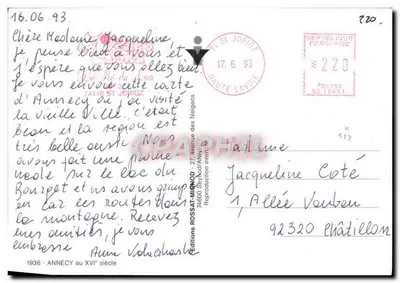 16.06.93
220.
Chère Madame Jacqueline,
je pense bien à vous et
j'espère que vous allez bien.
Je vous envoie cette carte
d'Annecy où j'ai visité
la vieille ville. c'était
beau et la région est
très belle aussi. Nous
avons fait une
sur le lac du
Bourget et ns avons
en car les routes dans
la montagne. Recevez
mes amitiés, je vous
embrasse
Anne
1936 - ANNECY au XVIe siècle
Editions ROSSAT-MIGNOD - 27, Avenue des Neiges
74600 Seynod/Annecy
Reproduction interdite
74 ST JORIOZ
17.6.93
HAUTE SAVOIE
74410 ST JORIOZ
REPUBLIQUE
FRANCAISE
220
POSTES
Madame
Jacqueline Coté
1, Allée Vauban
92320 Châtillon